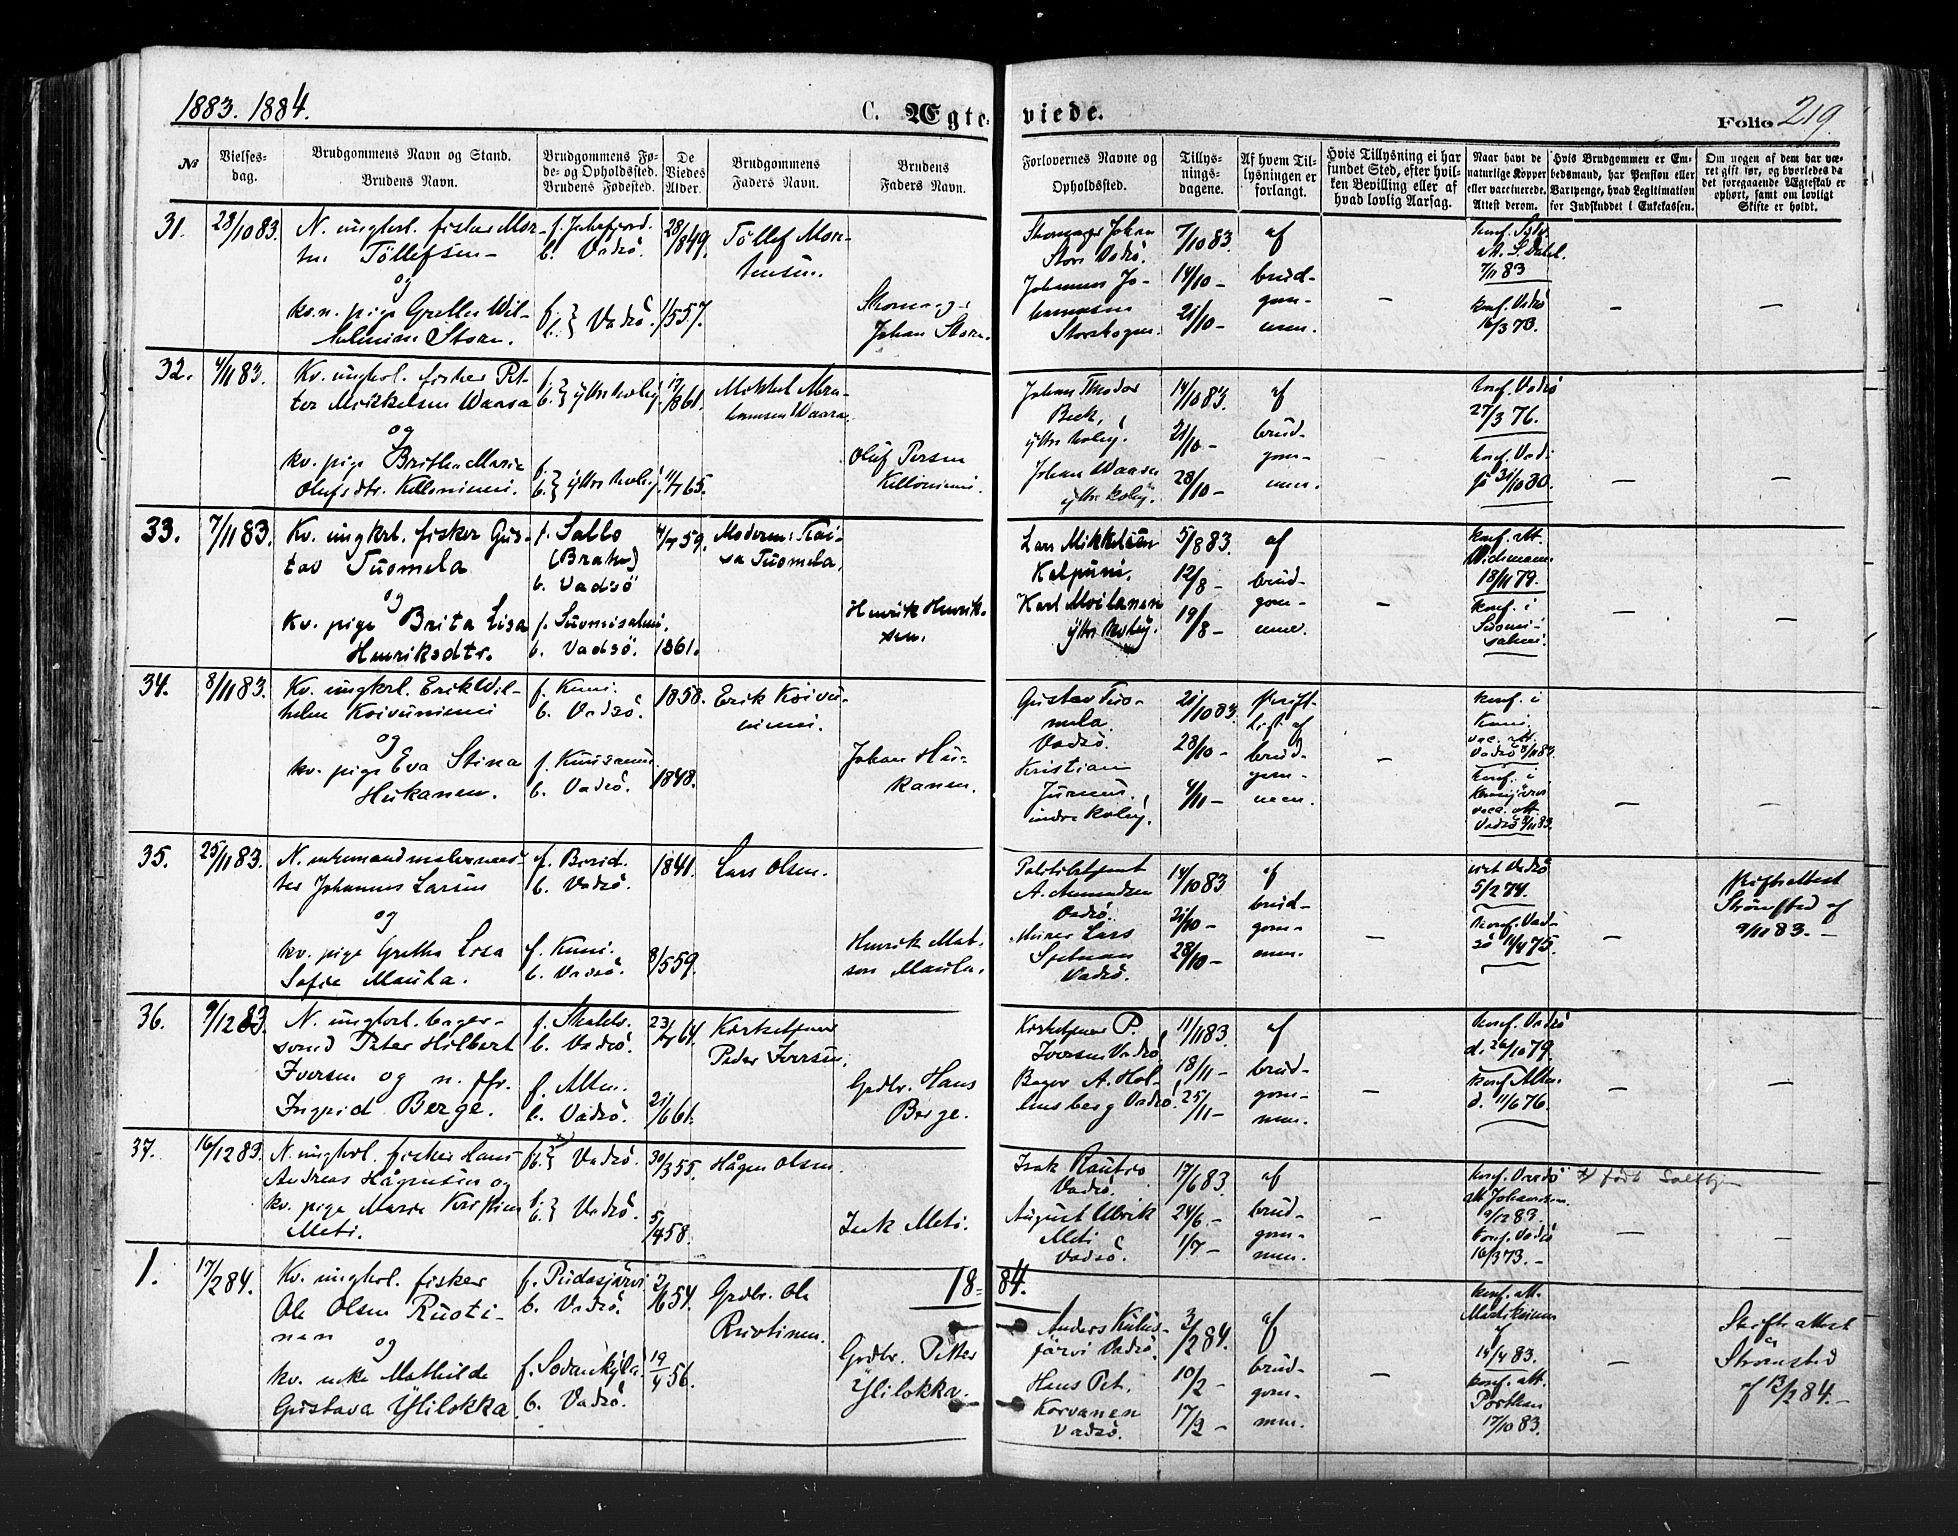 1883. 1884.
C. Ægte-
viede.
Folio 219.
No
Vielses-
dag.
Brudgommens Navn og Stand.
Brudens Navn.
Brudgommens Fø-
de- og Opholdssted.
Brudens Fødested.
De
Viedes
Alder.
Brudgommens
Faders Navn.
Brudens
Faders Navn.
Forlovernes Navne og
Opholdssted.
Tillys-
nings-
dagene.
Af hvem Til-
lysningen er
forlangt.
Hvis Tillysning ei har
fundet Sted, efter hvil-
ken Bevilling eller af
hvad lovlig Aarsag.
Naar havt de
naturlige Kopper
eller vaccinerede.
Attest derom.
Hvis Brudgommen er Em-
bedsmand, har Pension eller
Vartpenge, hvad Legitimation
for Indskuddet i Enkekassen.
Om nogen af dem har væ-
ret gift før, og hvorledes da
det foregaaende Ægteskab er
ophørt, samt om lovligt
Skifte er holdt.
31.
28/10 83.
N. ungkrl. fisker Mor-
ten Töllefsen
og
kv.n. pige Grethe Wil-
helmine Store.
b. Vadsö.
f. b. } Vadsö.
28/ 849.
1/5 57.
Töllef Mor-
tensen.
Skomag.
Johan Store.
Skomager Johan
Store Vadsö.
Johannes Jo-
hannesen
Storskogen.
7/10 83.
14/10 -
21/10 -
af
brud-
gom-
men.
7/11 83
konf. Vadsö
16/3 73.
32.
4/11 83.
Kv. ungkrl. fisker Pet-
ter Mikkelsen Waara
og
kv. pige Britha Marie
Olufsdtr. Kelloniemi.
f. b. } ytre kvbÿ
f. b. } ytre kvbÿ.
17/ 861.
11/7 65.
Mikkel Abra-
hamsen Waara.
Oluf Persen
Kelloniemi.
Johan Theodor
Beck,
ytre kvbÿ.
Johan Waara
ytre kvbÿ.
14/10 83.
21/10 -
28/10 -
af
brud-
gom-
men.
konf. Vadsö
27/3 76.
konf. Vad-
sö 31/10 80.
33.
7/11 83.
Kv. ungkrl. fisker Gus-
tav Tuomela
og
kv. pige Brita Lisa
Henriksdtr.
f. Sallo
(Brahe)
b. Vadsö
f. Suomisalmi.
b. Vadsö.
4/7 59.
1861.
Moderen: Kai-
sa Tuomela.
Henrik Henrik-
sen.
Lars Mikkelsen
Kalpuni.
Karl Moilanen
ytre kvbÿ.
5/8 83.
12/8 -
19/8 -
af
brud-
gom-
men.
konf. att.
Wichmann
18/11 79.
konf. i
Suomi-
salmi.
34.
8/11 83.
Kv. ungkrl. Erik Wil-
helm Koivuniemi
og
kv. pige Eva Stina
Hukanen.
f. Kemi.
b. Vadsö.
f. Kuusamo
b. Vadsö.
1858.
1848.
Erik Koivu-
niemi.
Johan Hu-
kanen.
Gustav Tuo-
mela
Vadsö.
Kristian
indre kvbÿ.
21/10 83.
28/10 -
4/11 -
skrift-
ligt af
brud-
gom-
men.
konf. i
Kemi
vac. att.
Vadsö 8/11 83.
konf. i
Kemijärvi
vacc. att.
Vadsö 8/11 83.
35.
25/11 83.
N. enkemand malermes-
ter Johannes Larsen
og
kv. pige Gretha Lisa
Sofie Maula.
b. Vadsö.
f. Kemi.
b. Vadsö.
1841.
8/5 59.
Lars Olsen.
Henrik Mat-
sen Maula.
Politibetjent
A. Amundsen
Vadsö.
Murer Lars
Vadsö.
14/10 83
21/10 -
28/10 -
af
brud-
gom-
men.
Vadsö
5/2 74.
konf. Vad-
sö 14/4 75.
Skifteattest
Strömsted af
9/11 83.
36.
9/12 83.
N. ungkrl. bager-
svend Peter Hilbert
Iversen og n. pfr.
Ingrid Berge.
b. Vadsö.
f. Alten.
b. Vadsö.
23/7 61.
21/6 61.
Kirketjener
Peder Iversen.
Grdbr. Hans
Berge.
Kirketjener P.
Iversen Vadsö
Bager A. Hol-
lensberg Vadsö.
11/11 83.
18/11 -
25/11 -
af
brud-
gom-
men.
konf. Vadsö
d. 26/10 79.
konf. Alten
d. 11/6 76.
37.
16/12 83.
N. ungkrl. fisker Hans
Andreas Hågensen og
kv. pige Marie Kristine
Meti.
f. b. } Vadsö.
f. b. } Vadsö.
30/3 55.
5/4 58.
Hågen Olsen.
Isak Meti.
Isak Rautio
Vadsö.
August Ulrik
Meti
Vadsö.
17/6 83.
24/6 -
1/7 -
af
brud-
gom-
men.
konf. Vadsö
att. Johannesen
9/12 83.
konf. Vadsö
16/3 73.
18 84.
1.
17/2 84.
Kv. ungkrl. fisker
Ole Olsen Ruoti-
nen
og
kv. enke Mathilde
Gustava Ylilokka.
f. Pudasjärvi
b. Vadsö.
f. Sodankylä
b. Vadsö.
2/6 54.
19/4 56.
Grdbr. Ole
Ruotinen.
Grdbr. Petter
Ylilokka.
Anders Kulus-
järvi Vadsö.
Hans Pet.
Korvanen
Vadsö.
3/2 84.
10/2 -
17/2 -
af
brud-
gom-
men.
konf. att.
af
14/4 83.
konf. att.
17/10 83.
Skifteattest
Strömsted
af 13/2 84.